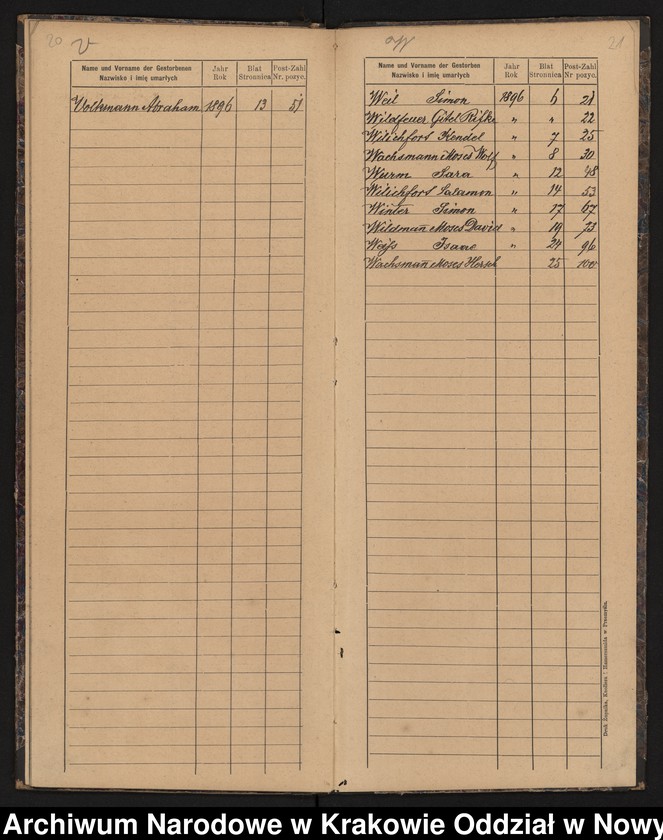 20 V
Name und Vorname der Gestorbenen
Nazwisko i imię umarłych
Jahr
Rok
Blat
Stronnica
Post-Zahl
Nr. pozyc.
Volkmann Abraham 1896 13 51
W 21
Name und Vorname der Gestorben
Nazwisko i imię umarłych
Jahr
Rok
Blat
Stronnica
Post-Zahl
Nr. pozyc.
Weil Simon 1896 6 21
Wildfeuer Gitel Rifke " " 22
Wilichfort Kendel " 7 25
Wachsmann Moses Wolf " 8 30
Wurm Sara " 12 48
Wilichfort Salamon " 14 53
Winter Simon " 17 67
Wildman Moses David " 19 73
Weiss Isaac " 24 96
Wachsman Moses Hersch 25 100
Druk Żupnika, Knollera i Hammerschmidta w Przemyślu.
Archiwum Narodowe w Krakowie Oddział w Nowy